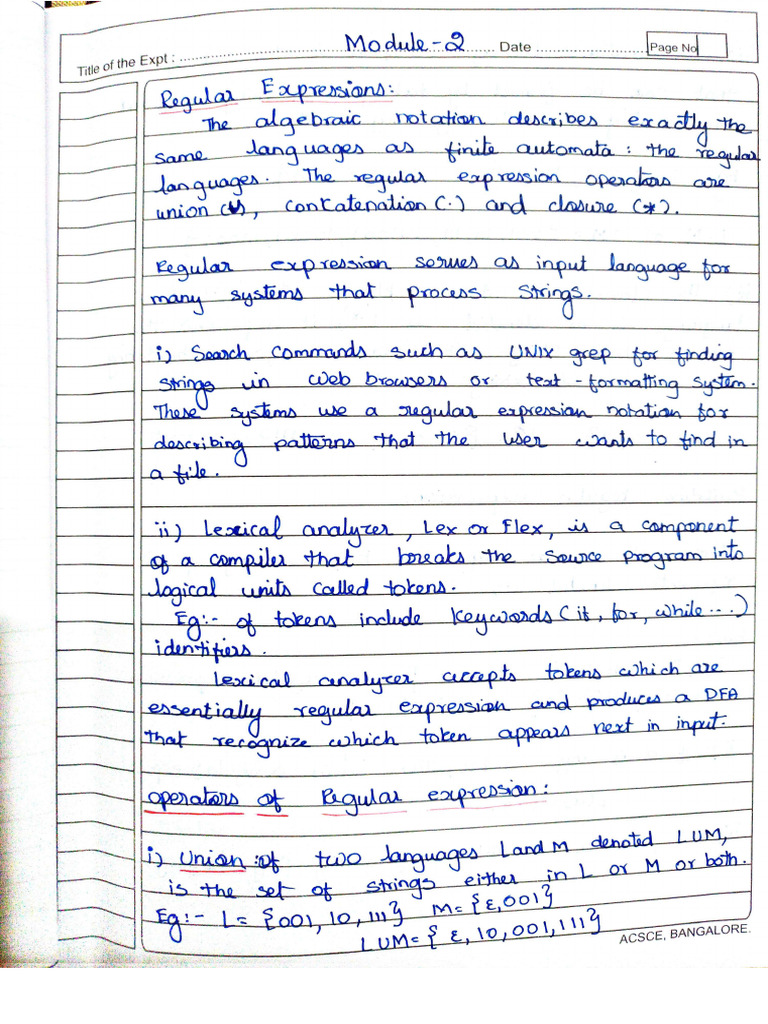 Title of the Expt : Module-2 Date Page No
Regular Expressions:
The algebraic notation describes exactly the
same languages as finite automata : the regular
languages. The regular expression operators are
union (∪), concatenation (·) and closure (*).
Regular expression serves as input language for
many systems that process strings.
i) Search commands such as UNIX grep for finding
strings in web browsers or text-formatting system.
These systems use a regular expression notation for
describing patterns that the user wants to find in
a file.
ii) Lexical analyzer, Lex or Flex, is a component
of a compiler that breaks the source program into
logical units called tokens.
Eg:- of tokens include keywords (if, for, while ...)
identifiers.
Lexical analyzer accepts tokens which are
essentially regular expression and produces a DFA
that recognize which token appears next in input.
operators of Regular expression:
i) Union: of two languages L and M denoted L∪M,
is the set of strings either in L or M or both.
Eg:- L= {001, 10, 111} M= {ε, 001}
L∪M= {ε, 10, 001, 111}
ACSCE, BANGALORE.